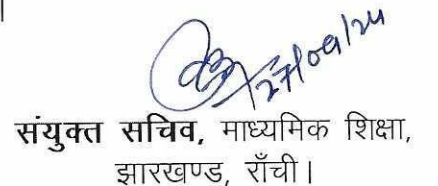 27/09/24
संयुक्त सचिव, माध्यमिक शिक्षा,
झारखण्ड, राँची।